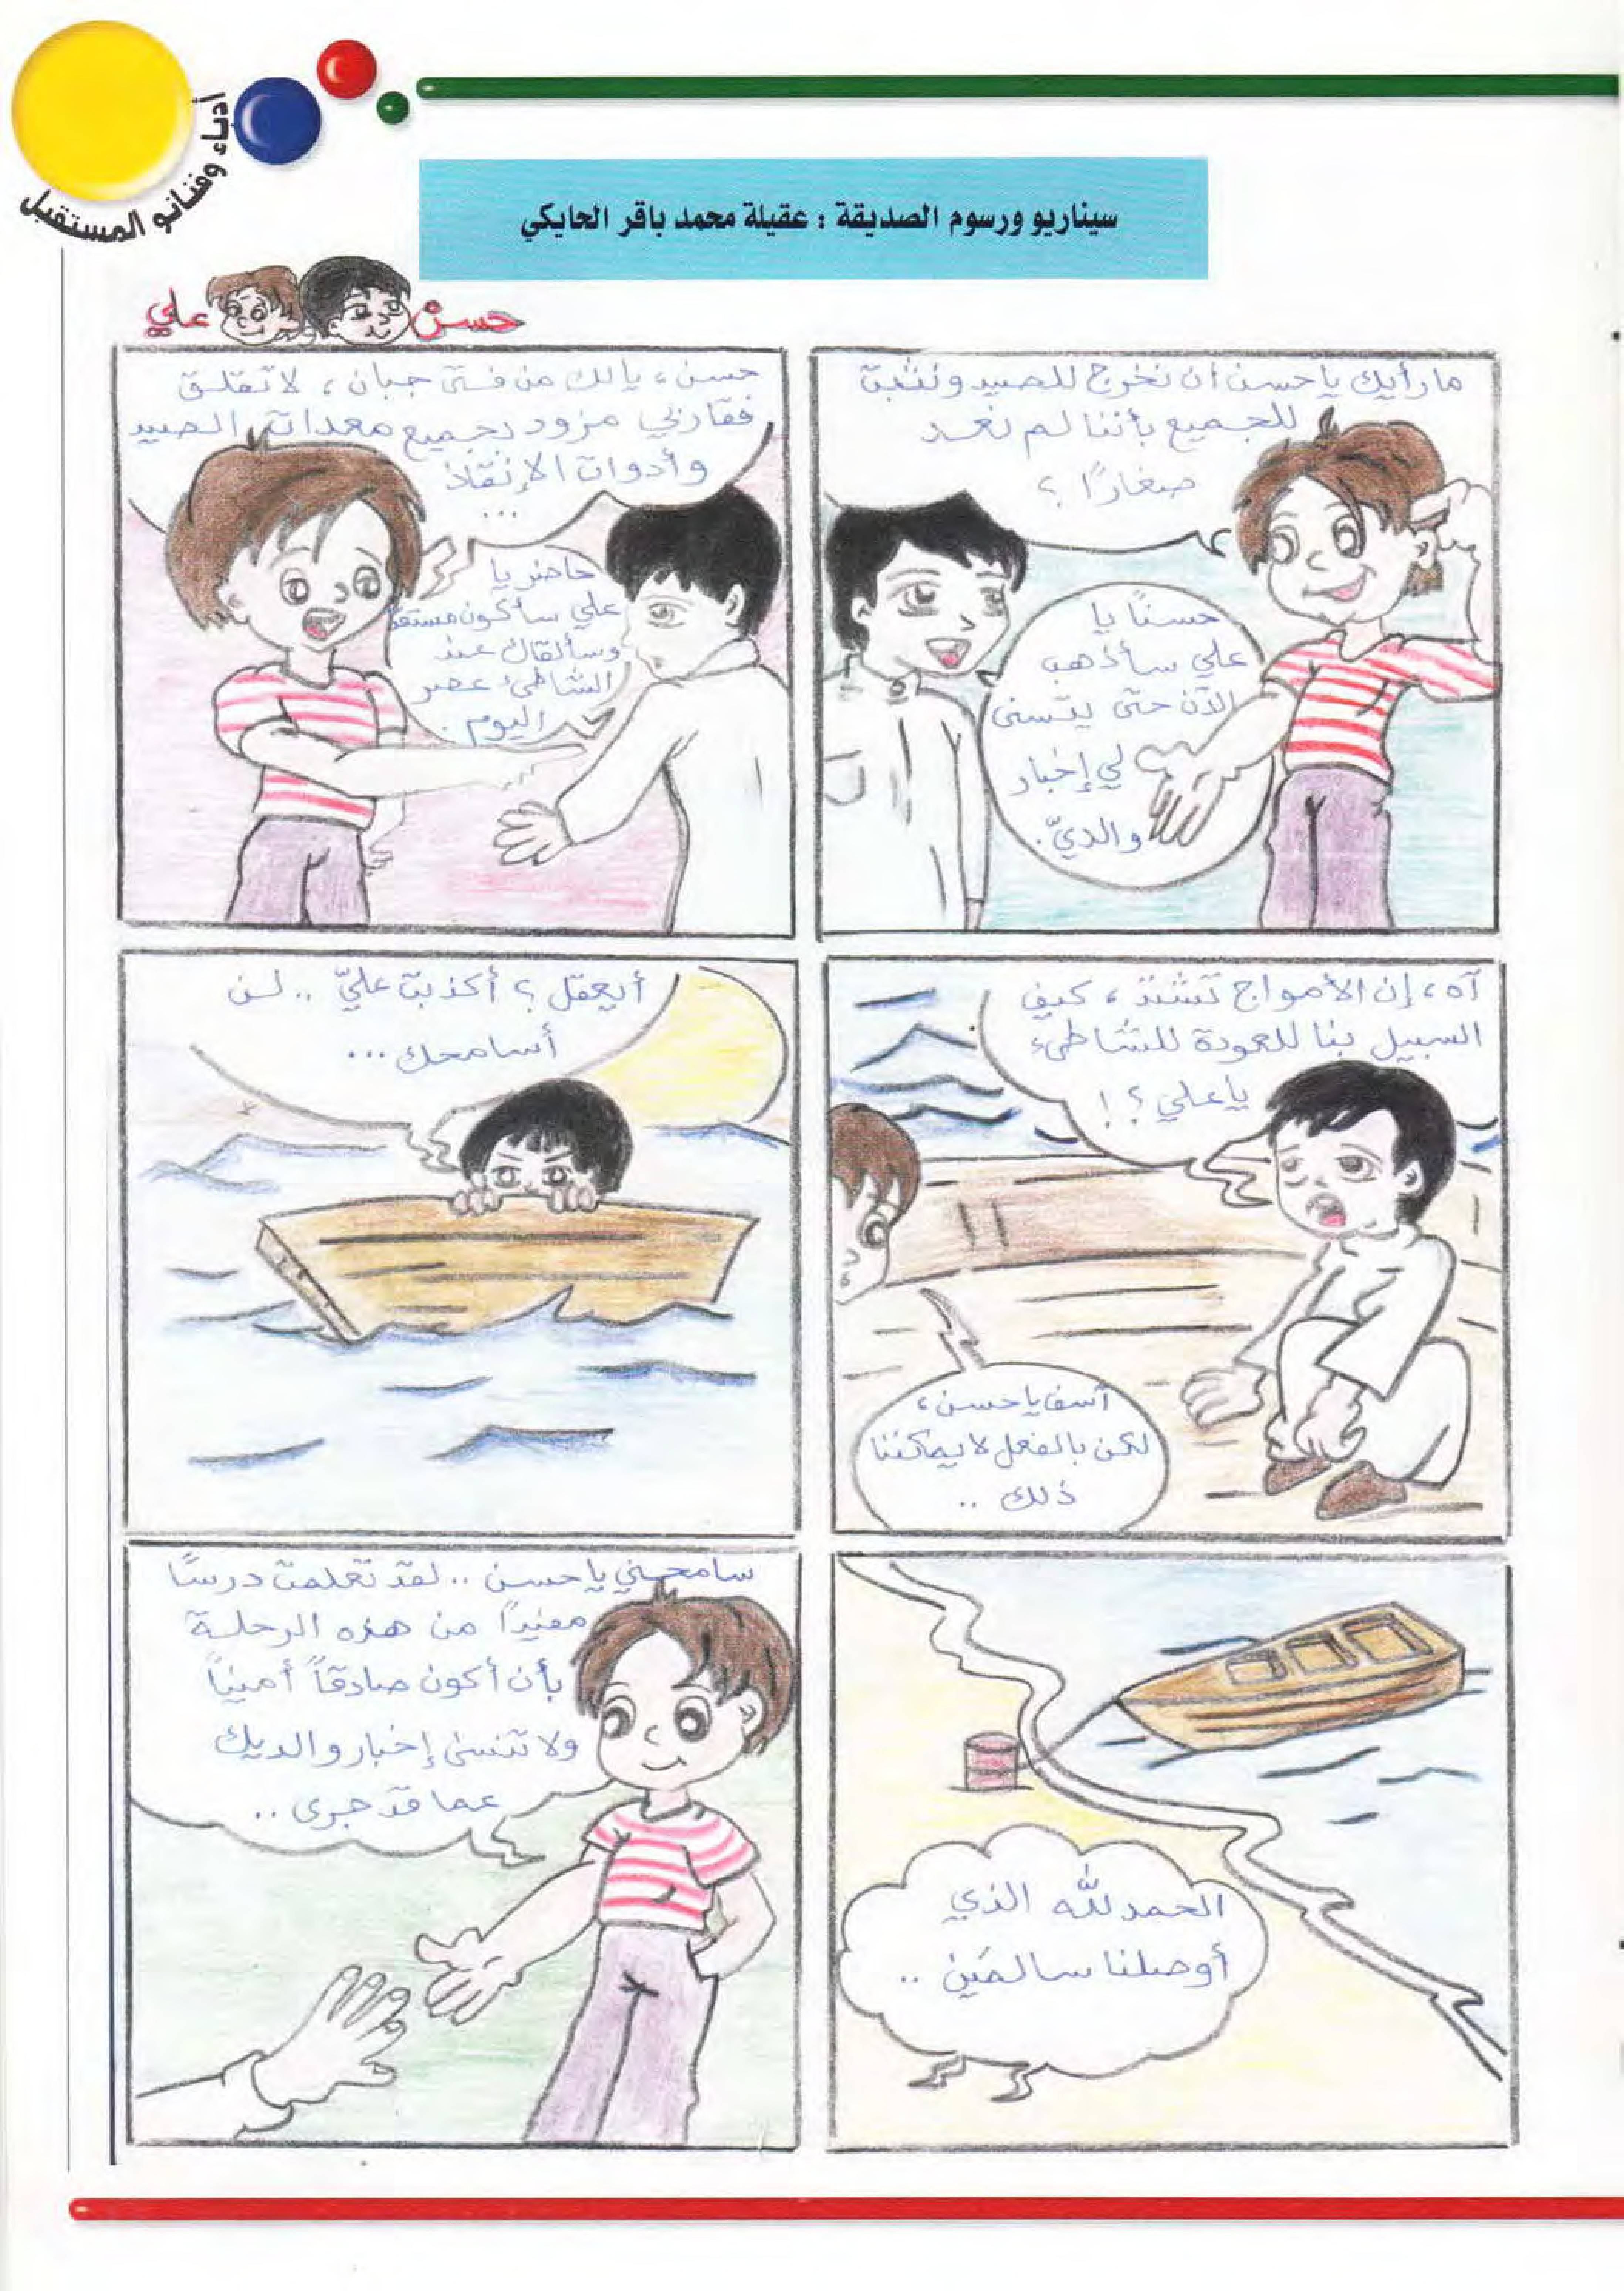 أدباء وفنانو المستقبل
سيناريو ورسوم الصديقة : عقيلة محمد باقر الحايكي
حسن
علي
ما رأيك يا حسن أن نخرج للصيد ونثبت
للجميع بأننا لم نعد
صغارًا ؟
حسنًا يا
علي سأذهب
الآن حتى يتسنى
لي إخبار
والديّ.
حسن، يا لك من فتى جبان، لا تقلق
فقاربي مزود بجميع معدات الصيد
وأدوات الإنقاذ
...
حاضر يا
علي سأكون
وسألقاك عند
الشاطئ عصر
اليوم.
آه، إن الأمواج تشتد، كيف
السبيل بنا للعودة للشاطىء
يا علي ؟!
آسف يا حسن،
لكن بالفعل لا يمكننا
ذلك ..
أيعقل ؟ أكذبت عليّ .. لن
أسامحك ...
الحمد لله الذي
أوصلنا سالمَين ..
سامحني يا حسن .. لقد تعلمت درسًا
مفيدًا من هذه الرحلة
بأن أكون صادقاً أميناً
ولا تنسى إخبار والديك
عما قد جرى ..